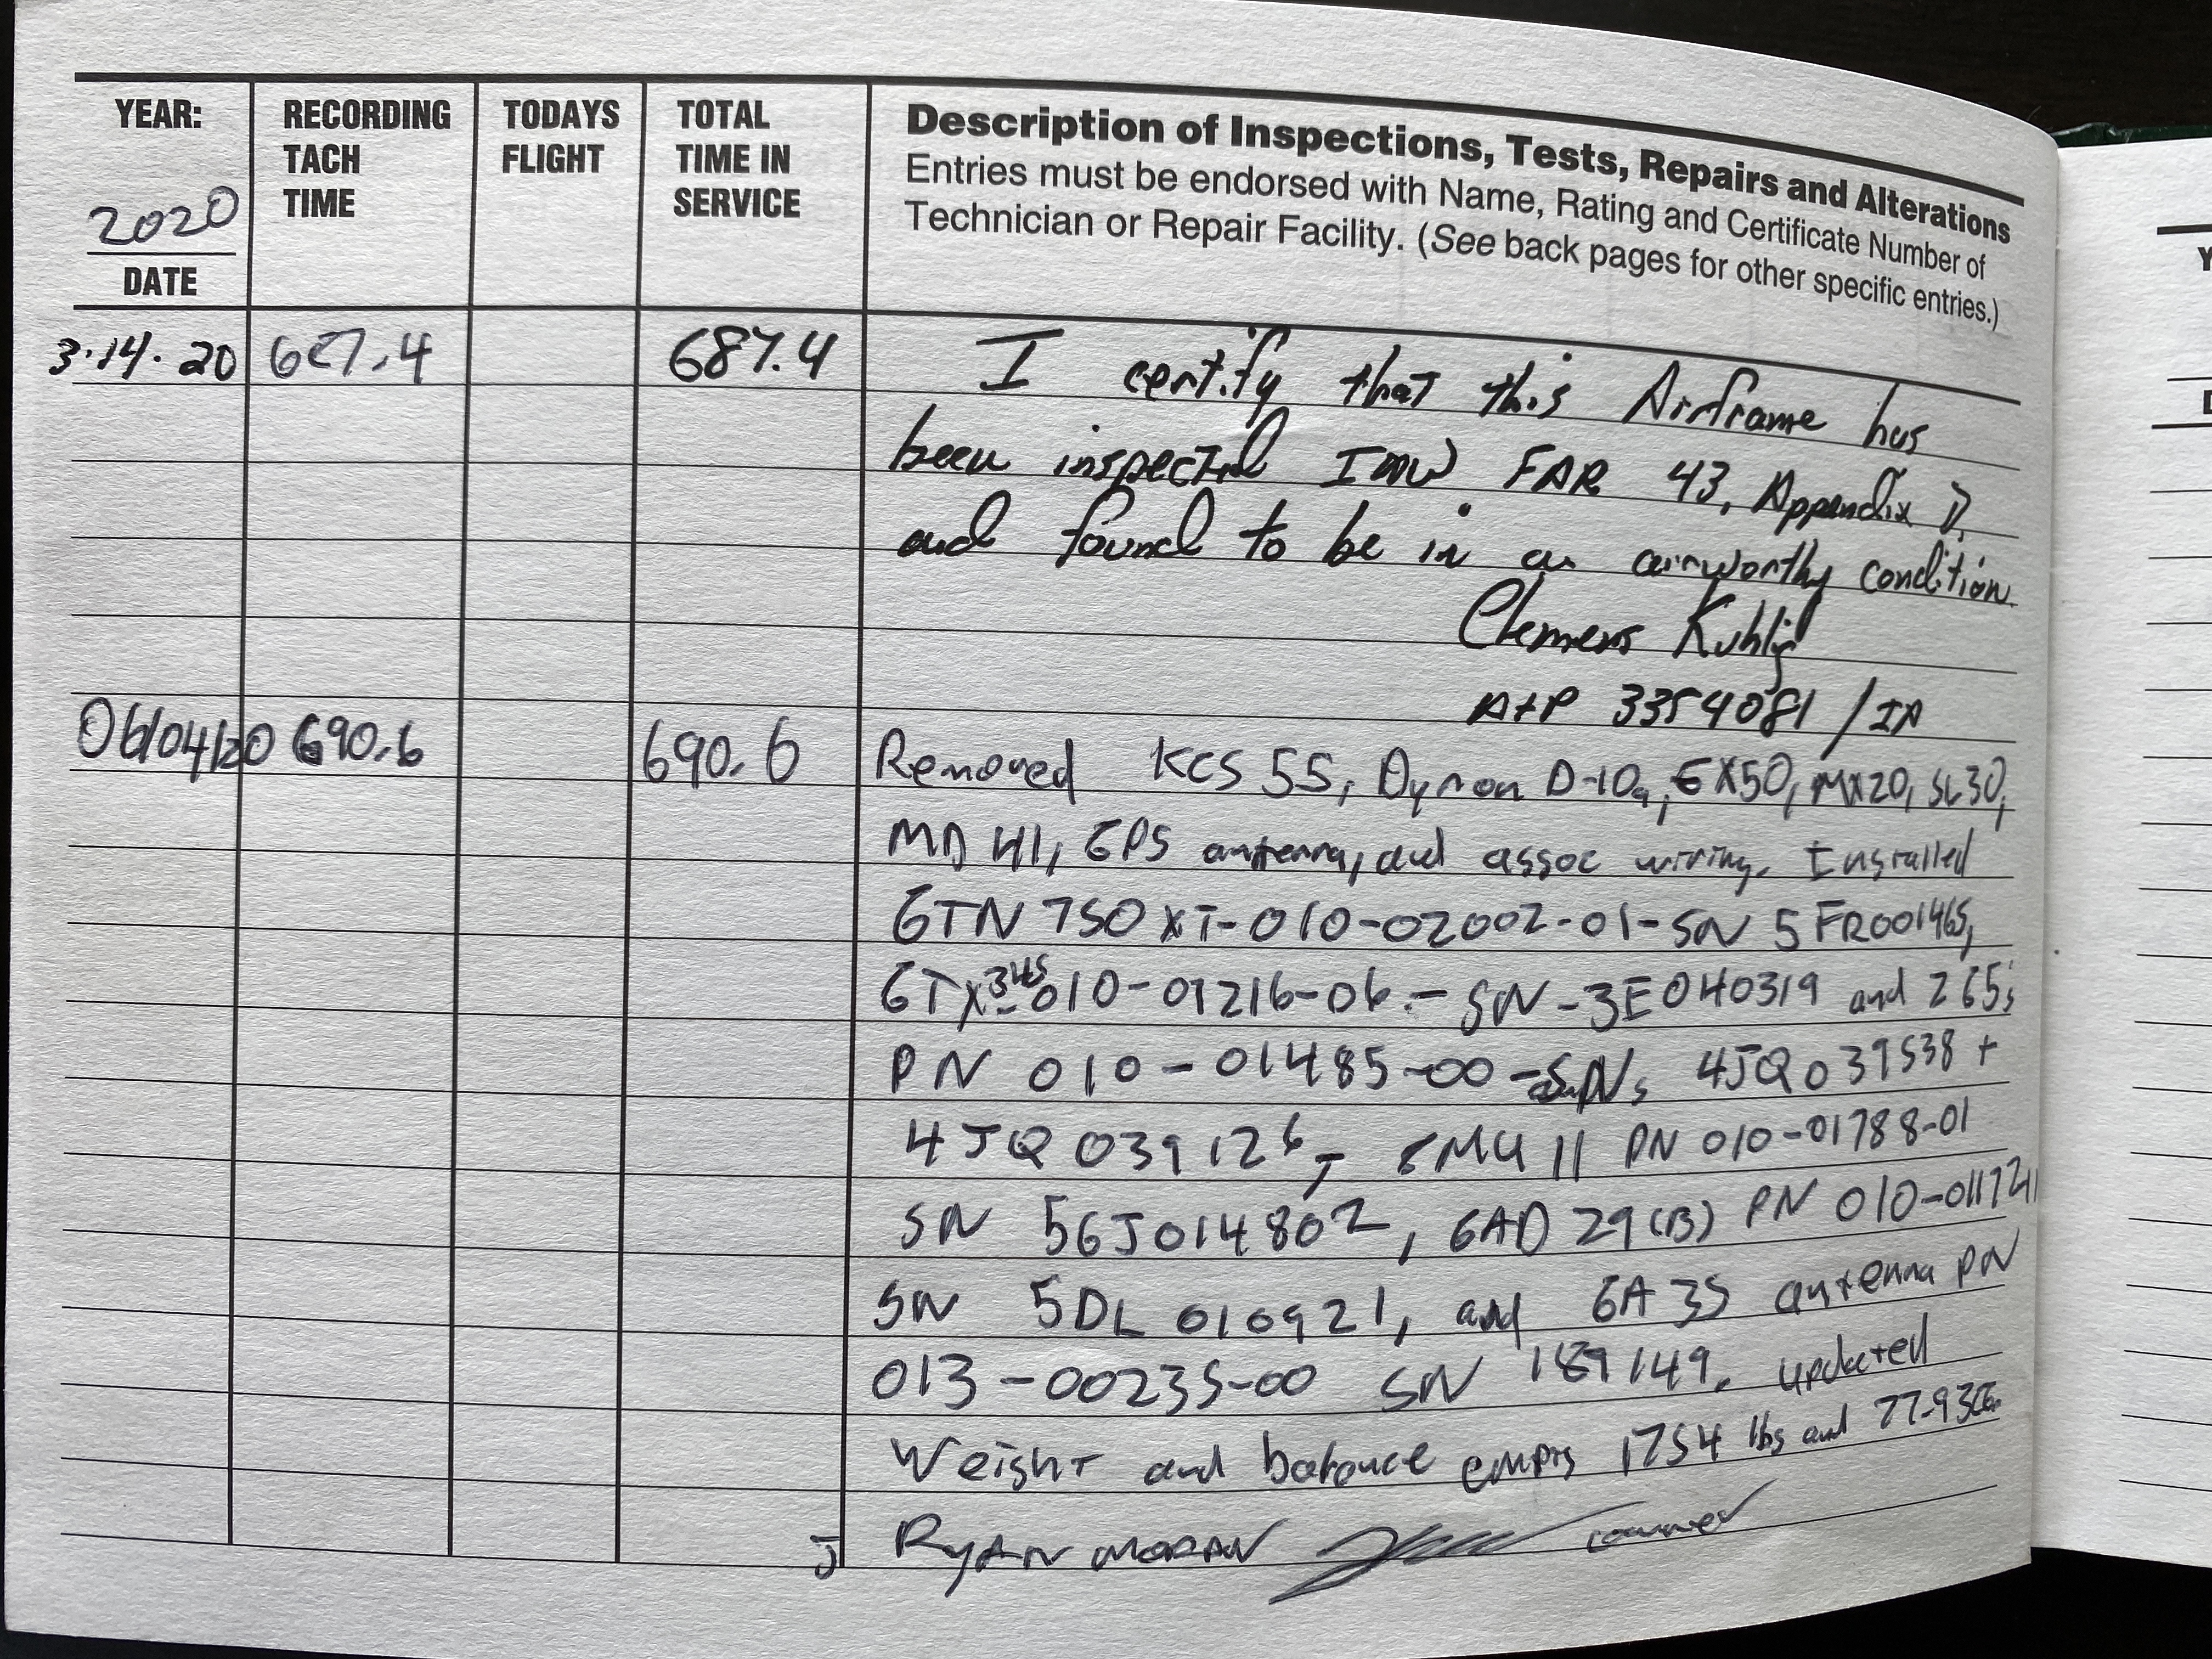 YEAR:
2020
DATE
RECORDING
TACH
TIME
TODAYS
FLIGHT
TOTAL
TIME IN
SERVICE
Description of Inspections, Tests, Repairs and Alterations
Entries must be endorsed with Name, Rating and Certificate Number of
Technician or Repair Facility. (See back pages for other specific entries.)
3.14.20 687.4 687.4 I certify that this Airframe has
been inspected IAW FAR 43, Appendix D,
and found to be in an airworthy condition.
Clemens Kuhlig
A+P 3354081 / IA
06/04/20 690.6 690.6 Removed KCS 55, Dynon D-10a, EX50, MX20, SL30,
MD 41, GPS antenna, and assoc wiring. Installed
GTN 750 XI-010-02002-01-SN 5FR001465,
GTX 345 010-01216-06 - SN-3E040319 and 265s
PN 010-01485-00 - SNs 4JQ039538 +
4JQ039126, GMU 11 PN 010-01788-01
SN 56J014802, GAD 29(B) PN
SN 5DL010921, and GA 35 antenna PN
013-00235-00 SN 189149. updated
Weight and balance empty 1754 lbs and
J Ryan Moran